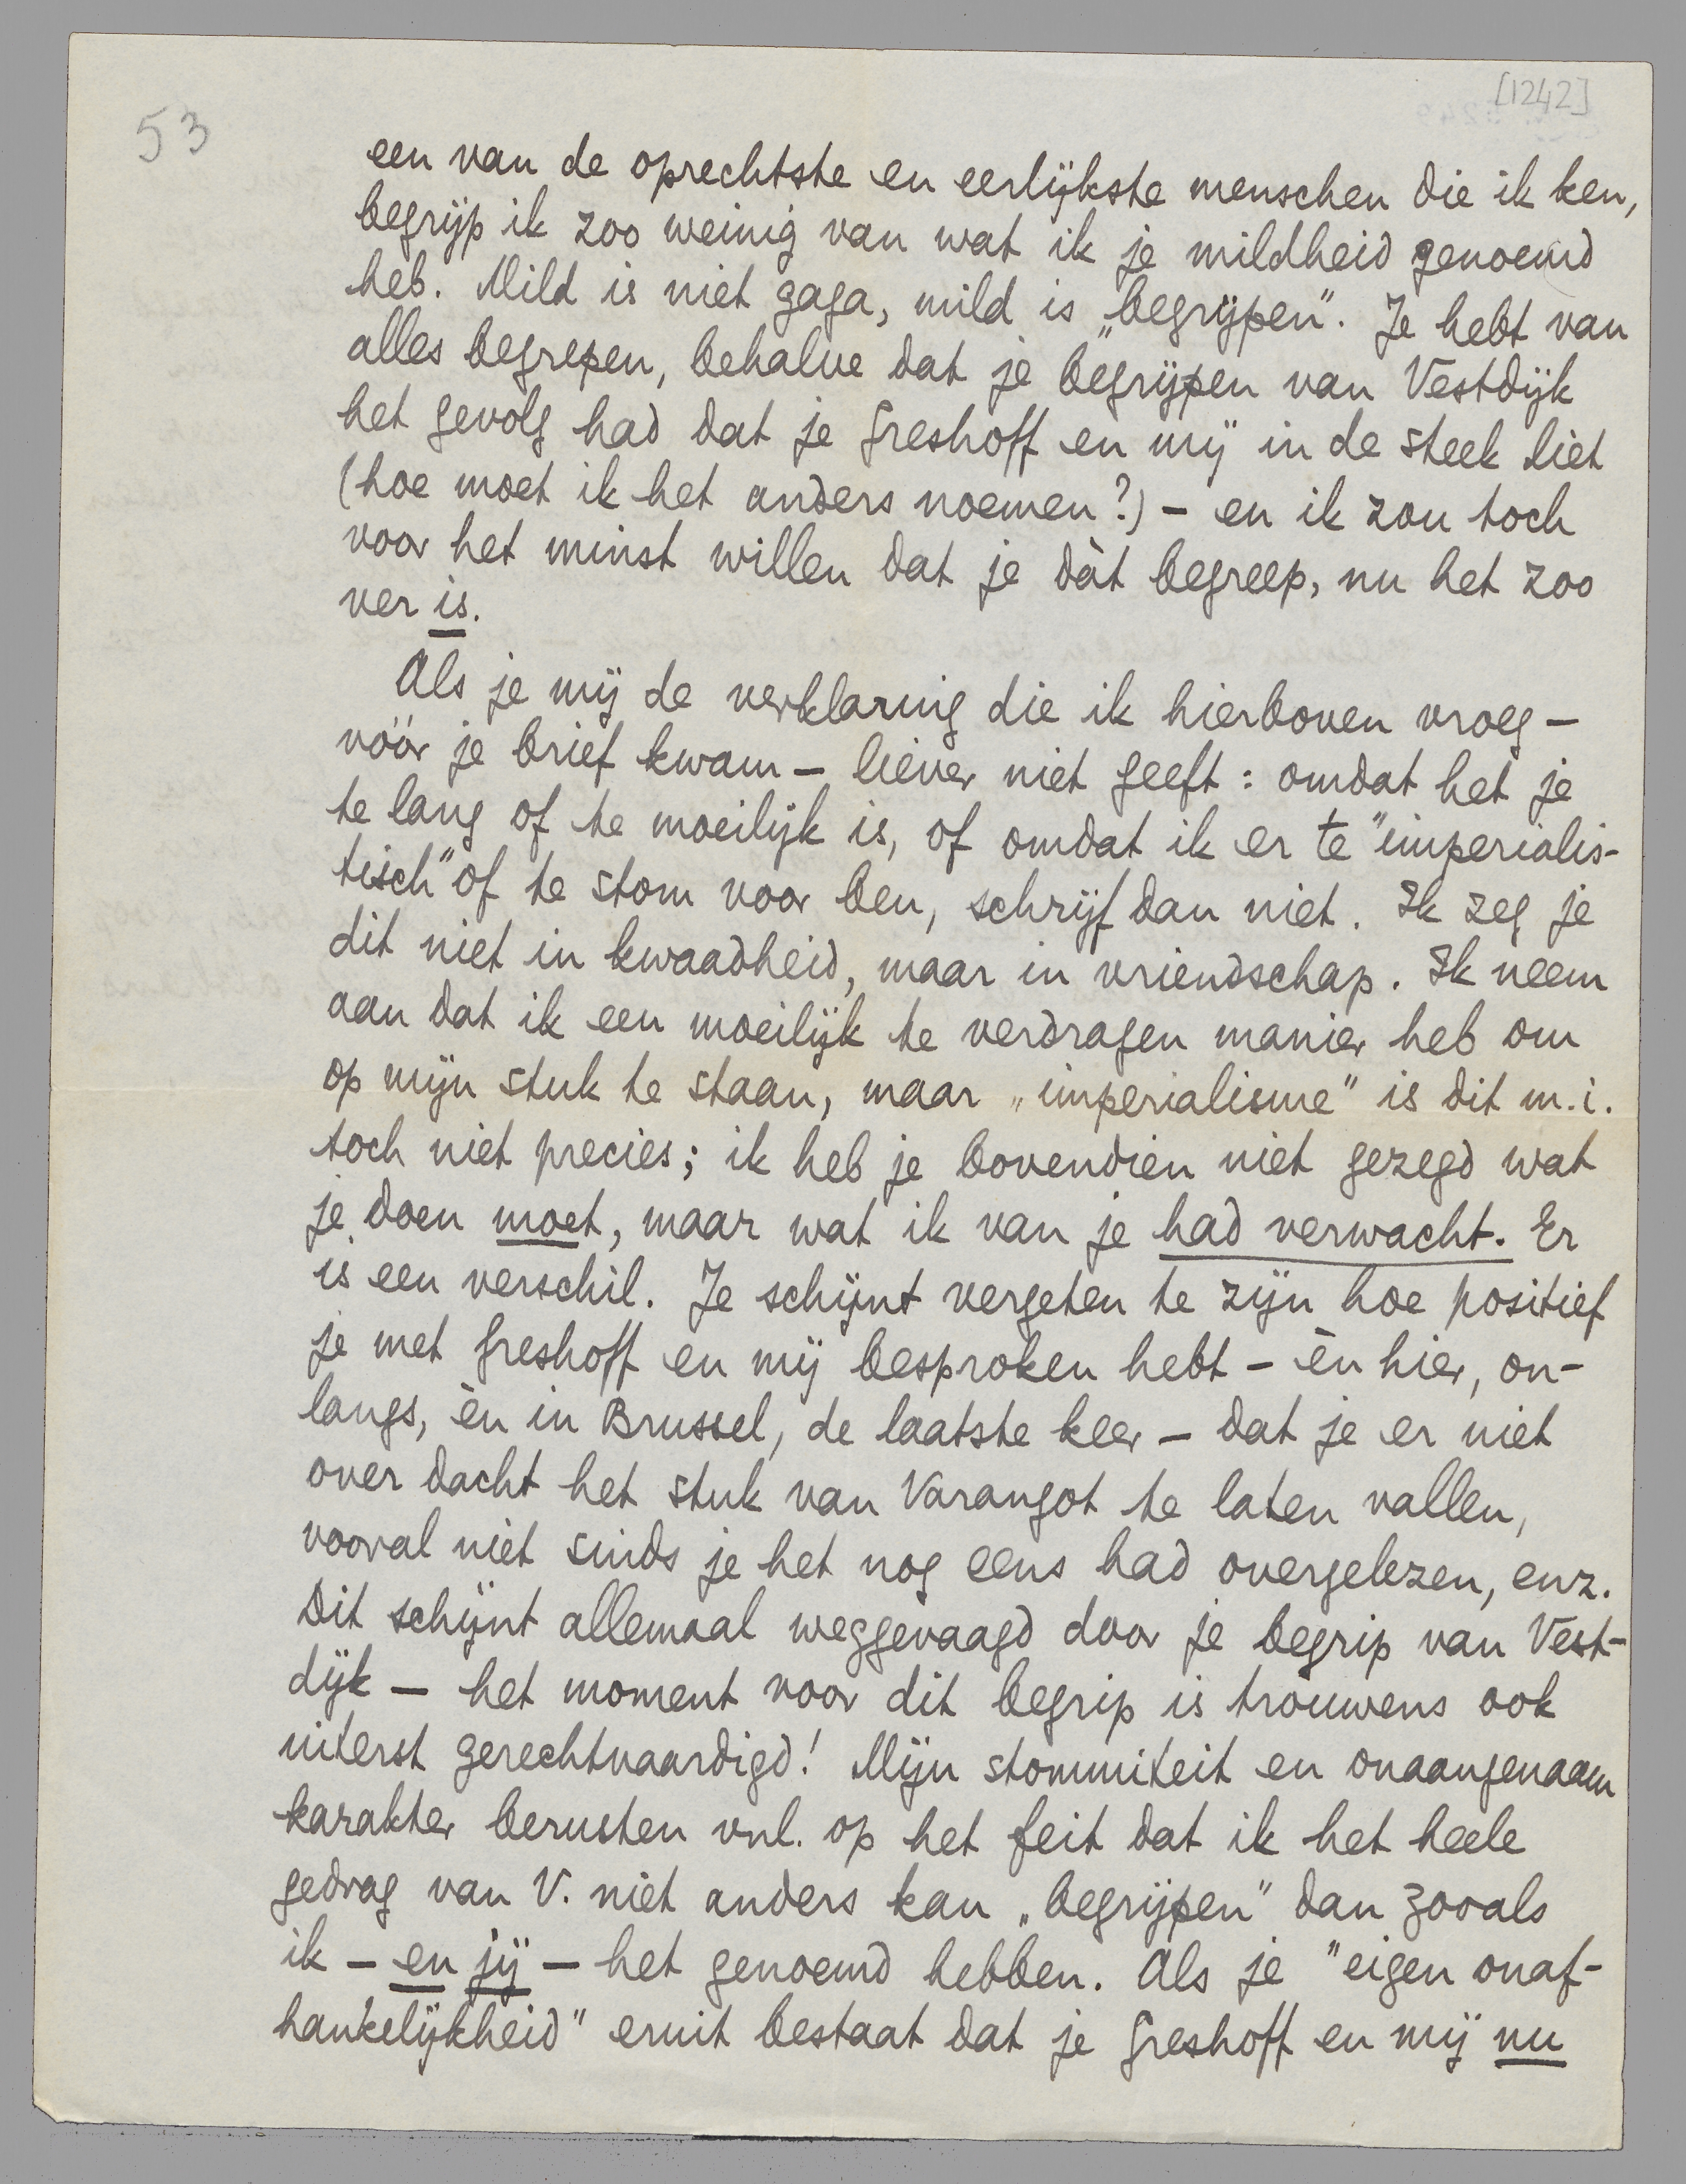 [1242]
53
een van de oprechtste en eerlijkste menschen die ik ken,
begrijp ik zoo weinig van wat ik je mildheid genoemd
heb. Mild is niet gaga, mild is „begrijpen". Je hebt van
alles begrepen, behalve dat je begrijpen van Vestdijk
het gevolg had dat je Greshoff en mij in de steek liet
(hoe moet ik het anders noemen?) – en ik zou toch
voor het minst willen dat je dàt begreep, nu het zoo
ver is.
Als je mij de verklaring die ik hierboven vroeg –
vóór je brief kwam – liever niet geeft: omdat het je
te lang of te moeilijk is, of omdat ik er te "imperialis-
tisch" of te stom voor ben, schrijf dan niet. Ik zeg je
dit niet in kwaadheid, maar in vriendschap. Ik neem
aan dat ik een moeilijk te verdragen manier heb om
op mijn stuk te staan, maar „imperialisme" is dit m.i.
toch niet precies; ik heb je bovendien niet gezegd wat
je doen moet, maar wat ik van je had verwacht. Er
is een verschil. Je schijnt vergeten te zijn hoe positief
je met Greshoff en mij besproken hebt – èn hier, on-
langs, èn in Brussel, de laatste keer – dat je er niet
over dacht het stuk van Varangot te laten vallen,
vooral niet sinds je het nog eens had overgelezen, enz.
Dit schijnt allemaal weggevaagd door je begrip van Vest-
dijk – het moment voor dit begrip is trouwens ook
uiterst gerechtvaardigd! Mijn stommiteit en onaangenaam
karakter berusten vnl. op het feit dat ik het heele
gedrag van V. niet anders kan „begrijpen" dan zooals
ik – en jij – het genoemd hebben. Als je "eigen onaf-
hankelijkheid" eruit bestaat dat je Greshoff en mij nu